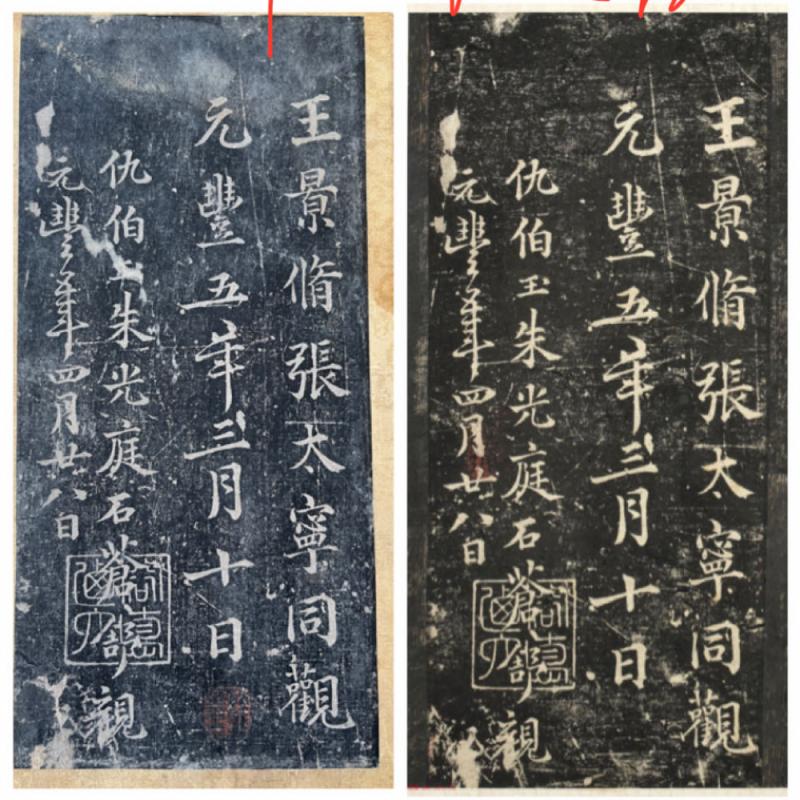 王景脩張太寧同觀
元豐五年三月十日
仇伯玉朱光庭石蒼舒觀
元豐年四月廿八日
王景脩張太寧同觀
元豐五年三月十日
仇伯玉朱光庭石蒼舒觀
元豐年四月廿八日